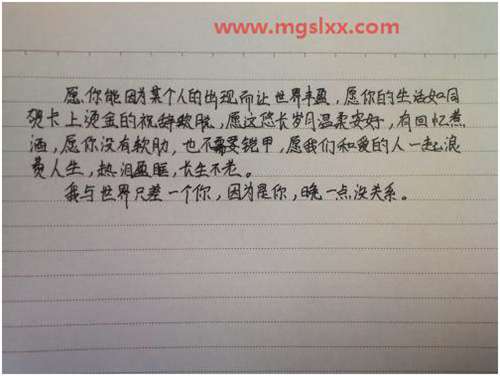 www.mgslxx.com
愿你能因为某个人的出现而让世界丰盈，愿你的生活如同
贺卡上烫金的祝辞欢脱，愿这悠长岁月温柔安好，有回忆煮
酒，愿你没有软肋，也不需要铠甲，愿我们和爱的人一起浪
费人生，热泪盈眶，长生不老。
我与世界只差一个你，因为是你，晚一点没关系。